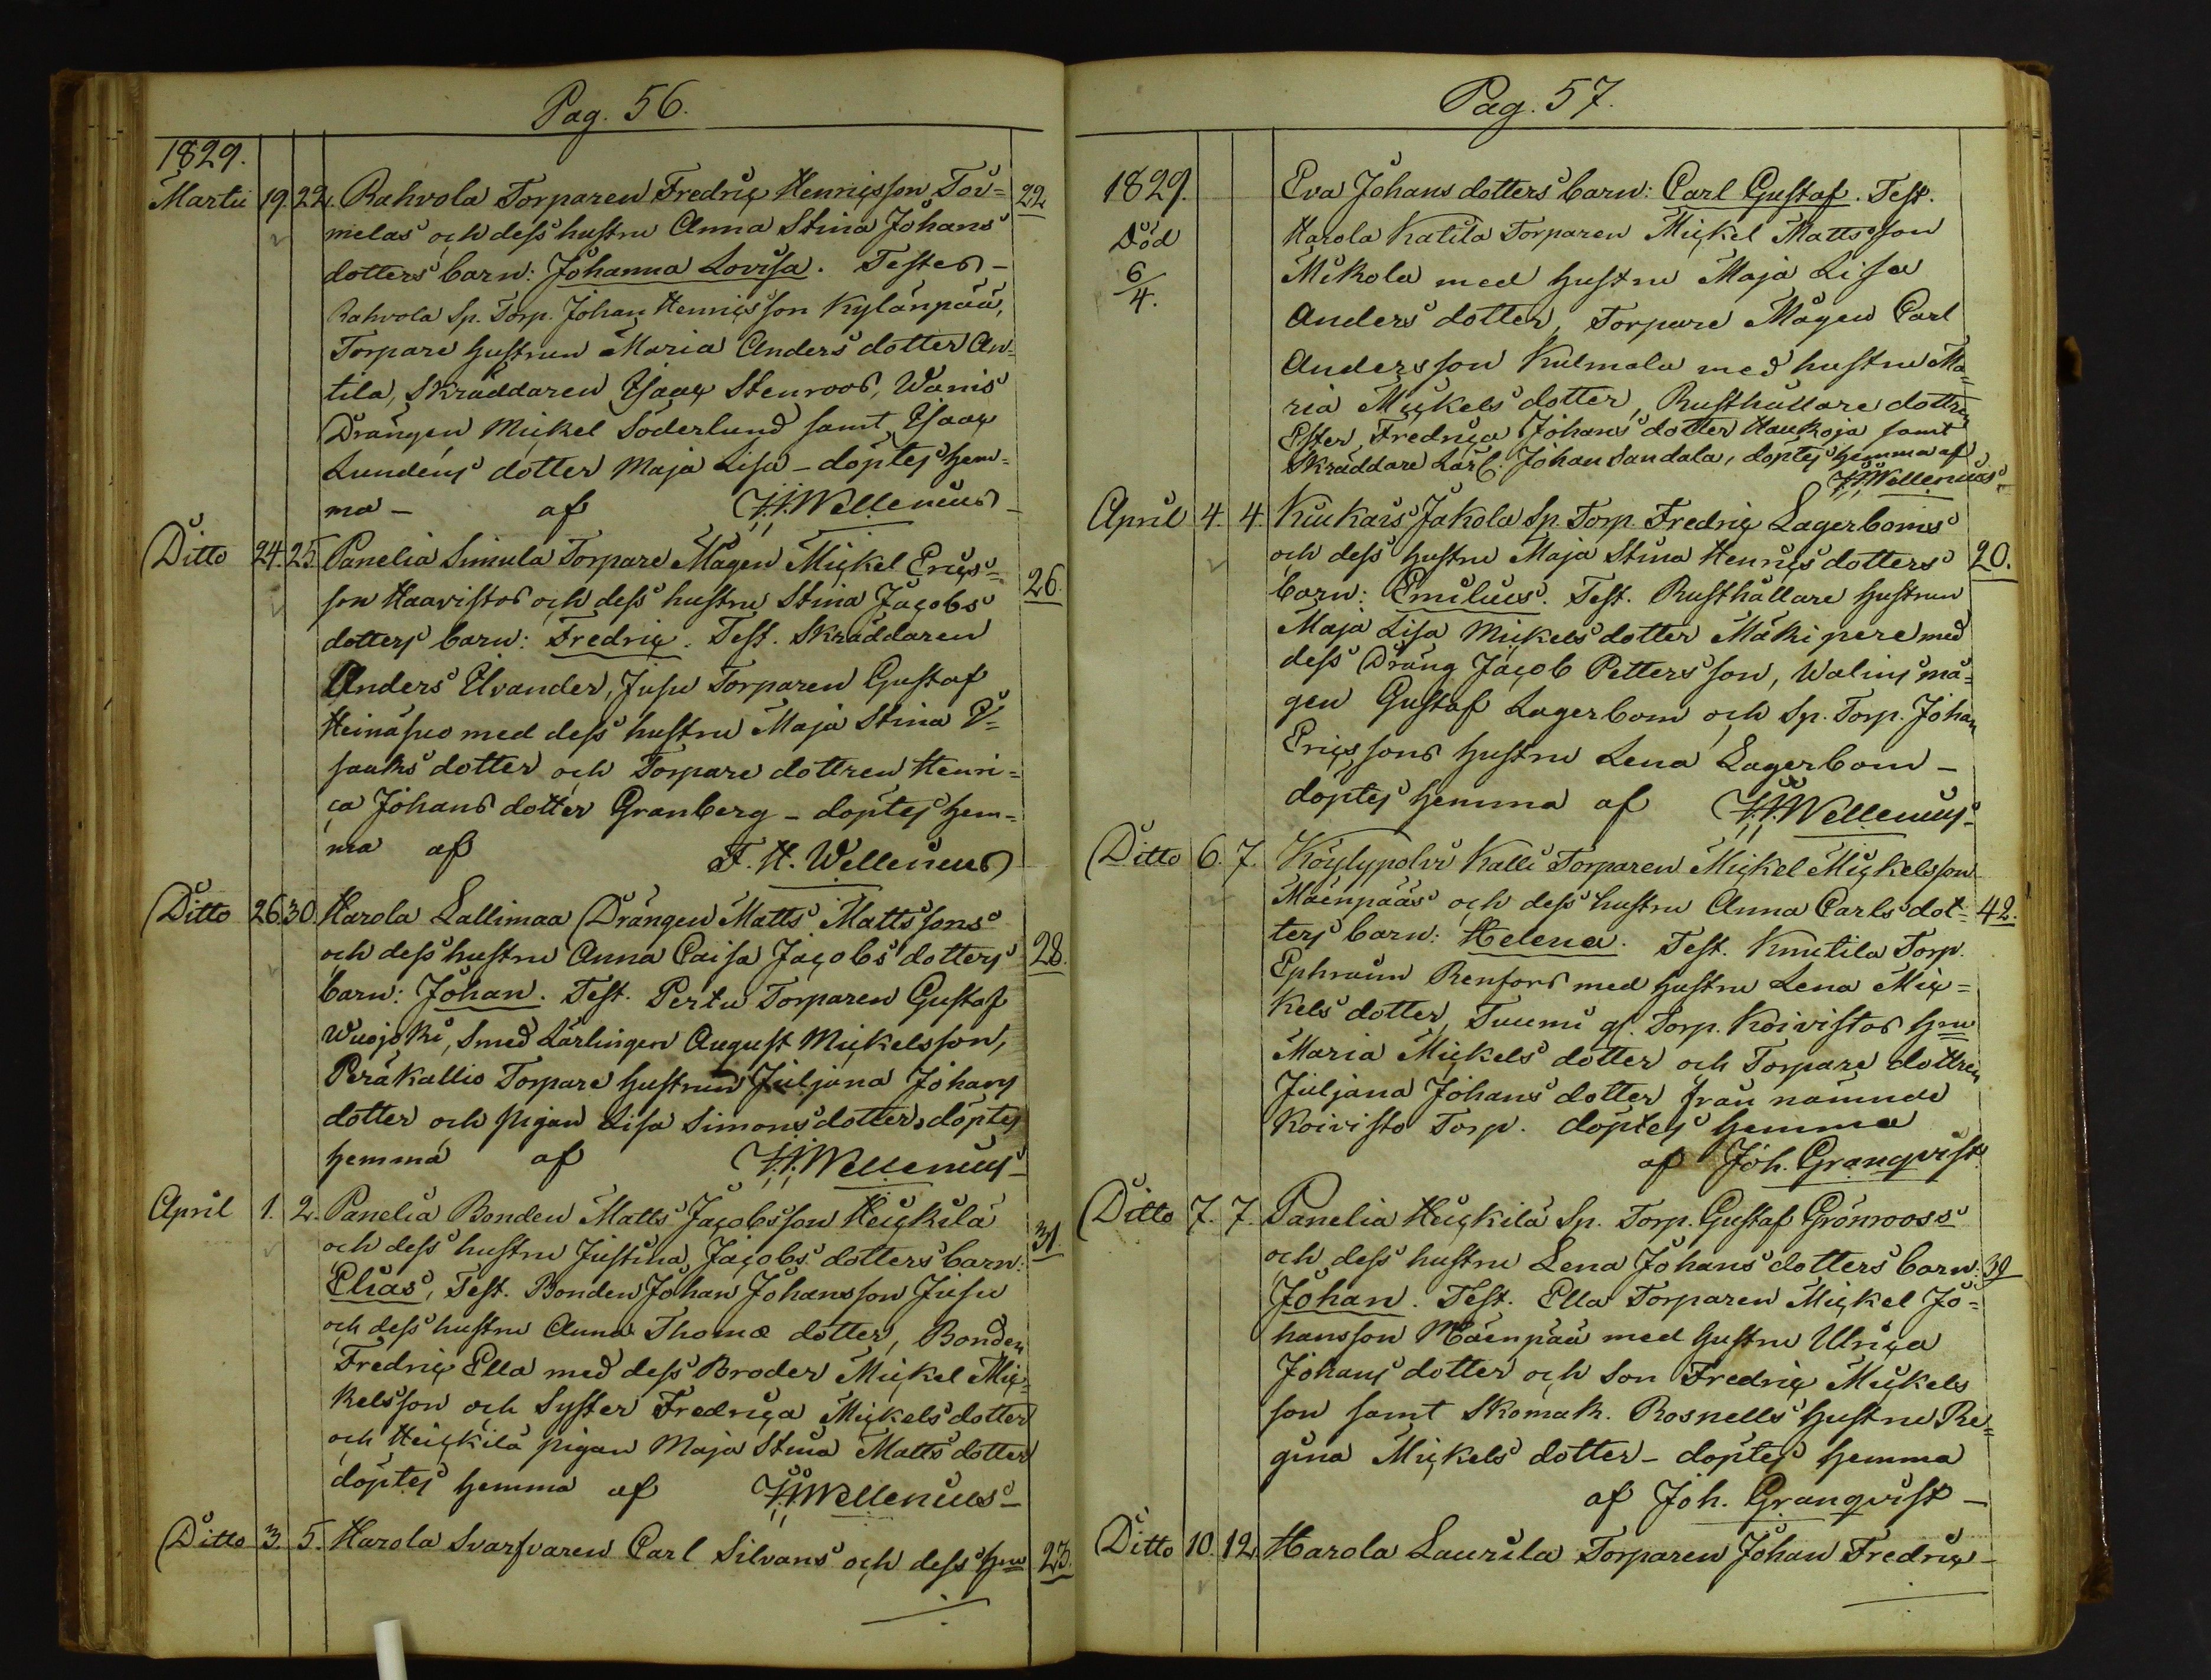 Pag. 56.
1829.
Martii 19. 22. Rahvola Torparen Fredric Henricsson Tör= 22
melas och dess hustru Anna Stina Johans
dotters barn: Johanna Lovisa. Testes –
Rahvola Sp. Torp. Johan Henricsson Kylänpää,
Torpare hustrun Maria Anders dotter An=
tila, Skräddaren Isaac Stenroos, Wanis
Drängen Mickel Söderlund samt Isaac
Lundens dotter Maja Lisa – döptes hem=
ma – af F.H. Wellenius –
Ditto 24. 25. Panelia Simula Torpare Mågen Mickel Erics= 26.
son Haavistos och dess hustru Stina Jacobs
dotters barn: Fredric. Test. Skräddaren
Anders Elvander, Jusu Torparen Gustaf
Heinäsuo med dess hustru Maja Stina I=
saaks dotter och Torpare dottren Henri=
ca Johans dotter Granberg – döptes hem=
ma af F. H. Wellenius
Ditto 26. 30. Harola Lallimaa Drängen Matts Mattssons
och dess hustru Anna Caisa Jacobs dotters 28.
barn: Johan. Test. Pertu Torparen Gustaf
Wuojoki, Smed Lärlingen August Mickelsson,
Peräkallio Torpare hustrun Juljana Johans
dotter och pigan Lisa Simons dotter, döptes
hemma af F.H. Wellenius –
April 1. 2. Panelia Bonden Matts Jacobsson Heickilä 31
och dess hustru Justina Jacobs dotters barn:
Elias, Test. Bonden Johan Johansson Jusu
och dess hustru Anna Thomæ dotter, Bonden
Fredric Ella med dess Broder Mickel Mic=
kelsson och Syster Fredrica Mickels dotter
och Heickilä pigan Maja Stina Matts dotter
döptes hemma af F.H. Wellenius –
Ditto 3. 5. Harola Svarfvaren Carl Silvans och dess hru 23.
Pag. 57.
1829. Eva Johans dotters barn: Carl Gustaf. Test.
Död Harola Katila Torparen Mickel Mattsson
6/4. Mikola med hustru Maja Lisa
Anders dotter, Torpare Mågen Carl
Andersson Kulmala med hustru Ma=
ria Mickels dotter, Rusthållare dottren
Ester Fredrica Johans dotter Haukoja samt
Skräddare Lärl. Johan Sandala, döptes hemma af
F.H. Wellenius –
April 4. 4. Kiukais Jakola Sp. Torp. Fredric Lagerboms
och dess hustru Maja Stina Henrics dotters 20.
barn: Emilius. Test. Rusthållare hustrun
Maja Lisa Mickels dotter Mäkipere med
dess Dräng Jacob Pettersson, Walins må=
gen Gustaf Lagerbom och Sp. Torp. Johan
Ericssons hustru Lena Lagerbom –
döptes hemma af F.H. Wellenius –
Ditto 6. 7. Köylypolvi Kalli Torparen Mickel Mickelsson
Mäenpääs och dess hustru Anna Carls dot= 42.
ters barn: Helena. Test. Knutila Torp.
Ephraim Renfors med hustru Lena Mic=
kels dotter, Tuumi gl. Torp. Koivistos hru
Maria Mickels dotter och Torpare dottren
Juljana Johans dotter från nämnde
Koivisto Torp. döptes hemma
af Joh. Granqvist.
Ditto 7. 7. Panelia Heickilä Sp. Torp. Gustaf Grönrooss
och dess hustru Lena Johans dotters barn: 39
Johan. Test. Ella Torparen Mickel Jo=
hansson Mäenpää med hustru Ulrica
Johans dotter och Son Fredric Mickels
son samt Skomak. Rosnells hustru Re=
gina Mickels dotter – döptes hemma
af Joh. Granqvist –
Ditto 10. 12. Harola Laurila Torparen Johan Fredric –